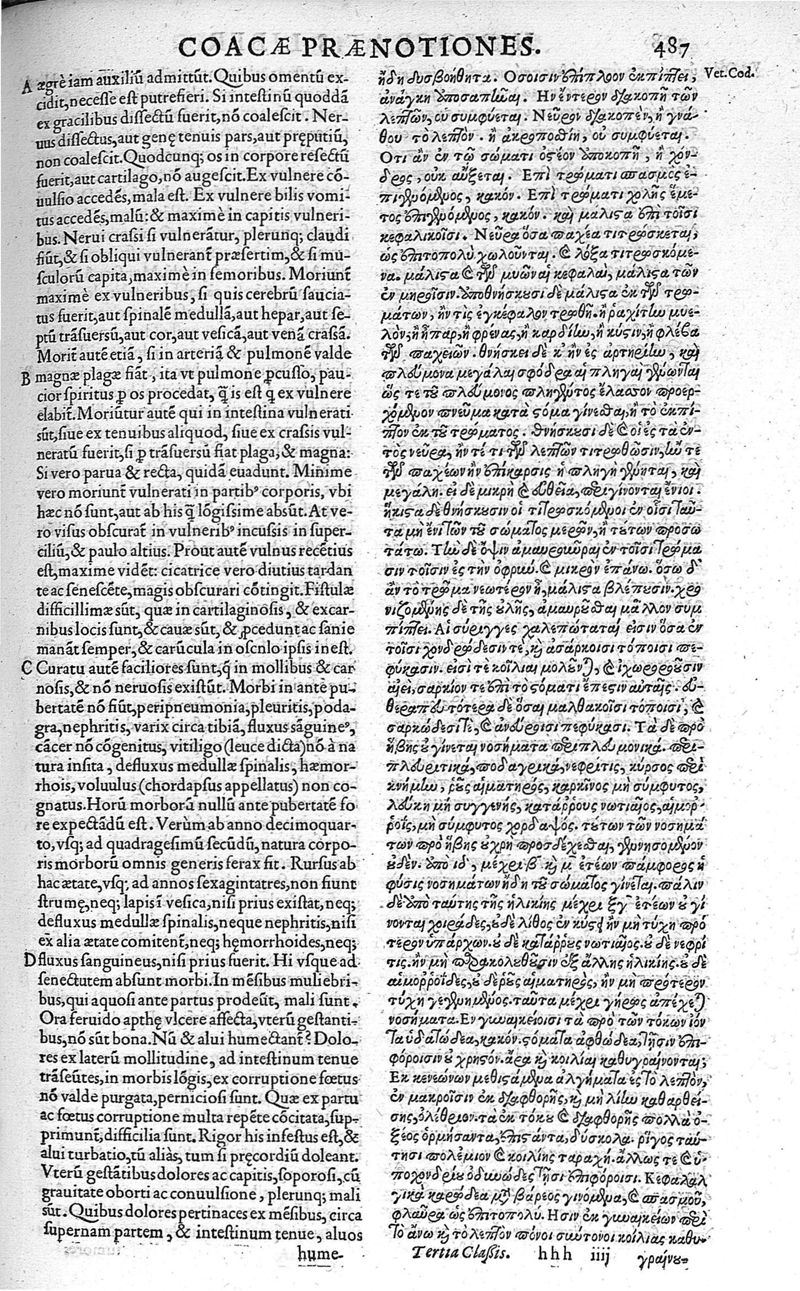 COACÆ PRÆNOTIONES. 487
A ægrè iam auxiliū admittūt. Quibus omentū ex-
cidit, necesse est putrefieri. Si intestinū quoddā
ex gracilibus dissectū fuerit, nō coalescit. Ner-
uus dissectus, aut genę tenuis pars, aut pręputiū,
non coalescit. Quodcunq; os in corpore resectū
fuerit, aut cartilago, nō augescit. Ex vulnere cō-
uulsio accedēs, mala est. Ex vulnere bilis vomi-
tus accedēs, malū: & maximè in capitis vulneri-
bus. Nerui crassi si vulnerātur, plerunq; claudi
fiūt, & si obliqui vulnerant̃ præsertim, & si mu-
sculorū capita, maximè in femoribus. Moriunt̃
maximè ex vulneribus, si quis cerebrū saucia-
tus fuerit, aut spinalē medullā, aut hepar, aut se-
ptū trāsuersū, aut cor, aut vesicā, aut venā crassā.
Morit̃ autē etiā, si in arteriā & pulmonē valde
B magnæ plagæ fiāt, ita vt pulmone pcusso, pau-
cior spiritus p os procedat, q̃ is est q̃ ex vulnere
elabit̃. Moriūtur autē qui in intestina vulnerati
sūt, siue ex tenuibus aliquod, siue ex crassis vul-
neratū fuerit, si p trāsuersū fiat plaga, & magna:
Si vero parua & recta, quidā euadunt. Minime
vero moriunt̃ vulnerati in partib⁹ corporis, vbi
hæc nō sunt, aut ab his q̃ lōgissime absūt. At ve-
ro visus obscurat̃ in vulnerib⁹ incussis in super-
ciliū, & paulo altius. Prout autē vulnus recētius
est, maxime vidēt: cicatrice vero diutius tardan
te ac senescēte, magis obscurari cōtingit. Fistulæ
difficillimæ sūt, quæ in cartilaginosis, & excar-
nibus locis sunt, & cauæ sūt, & pcedunt ac sanie
manāt semper, & carūcula in oscnlo ipsis inest.
C Curatu autē faciliores sunt, q̃ in mollibus & car
nosis, & nō neruosis existūt. Morbi in ante pu-
bertatē nō fiūt, peripneumonia, pleuritis, poda-
gra, nephritis, varix circa tibiā, fluxus sāguine⁹,
cācer nō cōgenitus, vitiligo (leuce dicta) nō à na
tura insita, defluxus medullæ spinalis, hæmor-
rhois, voluulus (chordapsus appellatus) non co-
gnatus. Horū morborū nullū ante pubertatē fo
re expectādū est. Verùm ab anno decimoquar-
to, vsq; ad quadragesimū secūdū, natura corpo-
ris morborū omnis generis ferax fit. Rursus ab
hac ætate, vsq; ad annos sexagintatres, non fiunt
strumę, neq; lapis ī vesica, nisi prius existat, neq;
defluxus medullæ spinalis, neque nephritis, nisi
ex alia ætate comitent̃, neq; hęmorrhoides, neq;
D fluxus sanguineus, nisi prius fuerit. Hi vsque ad
senectutem absunt morbi. In mēsibus muliebri-
bus, qui aquosi ante partus prodeūt, mali sunt.
Ora feruido apthę vlcere affecta, vterū gestanti-
bus, nō sūt bona. Nū & alui humectant̃? Dolo-
res ex laterū mollitudine, ad intestinum tenue
trāseūtes, in morbis lōgis, ex corruptione fœtus
nō valde purgata, perniciosi sunt. Quæ ex partu
ac fœtus corruptione multa repēte cōcitata, sup-
primunt̃, difficilia sunt. Rigor his infestus est, &
alui turbatio, tū aliàs, tum si pręcordiū doleant.
Vterū gestātibus dolores ac capitis, soporosi, cū
grauitate oborti ac conuulsione, plerunq; mali
sūt. Quibus dolores pertinaces ex mēsibus, circa
supernam partem, & intestinum tenue, aluos
hume-
ἤδη δυσβοήθητα. Οσοισιν ἐπίπλοον ἐκπίπτει,
Vet. Cod.
ἀνάγκη ἀποσαπῆναι. Ην ἔντερον διακοπῇ τῶν
λεπτῶν, οὐ συμφύεται. Νεῦρον διακοπὲν, ἢ γνά-
θου τὸ λεπτὸν. ἢ ἀκροποσθίη, οὐ συμφύεται.
Οτι ἂν ἐν τῷ σώματι ὀστέον ἀποκοπῇ, ἢ χόν-
δρος, οὐκ αὔξεται. Επὶ τρώματι σπασμὸς ἐ-
πιγενόμενος, κακόν. Επὶ τρώματι χολῆς ἔμε-
τος ἐπιγενόμενος, κακόν. καὶ μάλιστα ἐπὶ τοῖσι
κεφαλικοῖσι. Νεῦρα ὅσα παχέα τιτρώσκεται,
ὡς ἐπιτοπολὺ χωλοῦνται. καὶ λοξὰ τιτρωσκόμε-
να. μάλιστα καὶ τῶν μυῶν αἱ κεφαλαὶ, μάλιστα τῶν
ἐν μηροῖσιν. ἀποθνήσκουσι δὲ μάλιστα ἐκ τῶν τρω-
μάτων, ἤν τις ἐγκέφαλον τρωθῇ. ἢ ῥαχίτην μυε-
λὸν, ἢ ἧπαρ, ἢ φρένας, ἢ καρδίην, ἢ κύστιν, ἢ φλέβα
τῶν παχειῶν. θνήσκει δὲ κ̀ ἢν ἐς ἀρτηρίην, καὶ
πλεύμονα μεγάλαι σφόδρα αἱ πληγαὶ γένωνται
ὥς τε τοῦ πλεύμονος πληγέντος ἔλασσον προερ-
χόμενον πνεῦμα κατὰ στόμα γίνεσθαι, ἢ τὸ ἐκπῖ-
πτον ἐκ τοῦ τρώματος. θνήσκουσι δὲ καὶ οἱ ἐς τὰ ἐν-
τὸς νεῦρα, ἤν τέ τι τῶν λεπτῶν τιτρωθῶσιν, ἤν τε
τῶν παχέων ἢν ἐπικάρσις ἡ πληγὴ γένηται, καὶ
μεγάλη. εἰ δὲ μικρὴ καὶ εὐθεῖα, περιγίνονται ἔνιοι.
ἥκιστα δὲ θνήσκουσιν οἱ τιτρωσκόμενοι ἐν οἷσι ταῦ-
τα μὴ ἔνι τῶν τοῦ σώματος μερῶν, ἢ τούτων προσω
τάτω. Τὴν δὲ ὄψιν ἀμαυροῦνται ἐν τοῖσι τρώμα
σιν τοῖσιν ἐς τὴν ὀφρῦν. καὶ μικρὸν ἐπάνω. ὅσω δ̓
ἂν τὸ τρῶμα νεώτερον ᾖ, μάλιστα βλέπουσιν. χρο
νιζομένης δὲ τῆς οὐλῆς, ἀμαυροῦσθαι μᾶλλον συμ
πίπτει. Αἱ σύριγγες χαλεπώταταί εἰσιν ὅσαι ἐν
τοῖσι χονδρώδεσίν τε, καὶ ἀσάρκοισι τόποισι πε-
φύκασιν. εἰσί τε κοῖλαι μολοῦνται, καὶ ἰχωροροοῦσιν
αἰεὶ, σαρκίον τε ἐπὶ τὸ στόματι ἔπεσιν αὐταῖς. εὐ-
θεραπευτότεραι δὲ ὅσαι μαλθακοῖσι τόποισι, καὶ
σαρκώδεσί τε, καὶ ἀνεύροισι πεφύκασι. Τὰ δὲ πρὸ
ἥβης οὐ γίνεται νοσήματα περιπλευμονικά. περι-
πλευριτικά, ποδαγρικά, νεφρῖτις, κύρσος περὶ
κνήμην, ῥοῦς αἱματηρὸς, καρκῖνος μὴ σύμφυτος,
λεύκη μὴ συγγενὴς, κατάρρους νωτιαῖος, αἱμορ-
ροῒς, μὴ σύμφυτος χορδαψὸς. τούτων τῶν νοσημά
των πρὸ ἥβης οὐ χρὴ προσδέχεσθαι, γενησόμενον
οὐδέν. ἀπὸ ιδ̓, μέχρι β̓ κ̀ μ̓ ἐτέων πάμφορος ἡ
φύσις νοσημάτων ἤδη τοῦ σώματος γίνεται. πάλιν
δὲ ἀπὸ ταύτης τῆς ἡλικίης μέχρι ξγ̓ ἐτέων οὐ γί
νονται χοιράδες, οὐδὲ λίθος ἐν κύστει ἢν μὴ τύχῃ πρό
τερον ὑπάρχων. οὐδὲ κατάρρους νωτιαῖος. οὐδὲ νεφρῖ
τις. ἢν μὴ παρακολουθῶσιν ἐξ ἄλλης ἡλικίης. οὐδὲ
αἱμορροΐδες, οὐδὲ ῥοῦς αἱματηρὸς, ἢν μὴ πρότερον
τύχῃ γεγενημένος. ταῦτα μέχρι γήρως ἀπέχεται
νοσήματα. Εν γυναικείοισι τὰ πρὸ τῶν τόκων ἰόν
τα ὑδατώδεα, κακόν. στόματα ἀφθώδεα, τῇσιν ἐπι-
φόροισιν οὐ χρηστόν. ἆρα κ̀ κοιλίαι καθυγραίνονται;
Εκ κενεώνων μεθιστάμενα ἀλγήματα ἐς τὸ λεπτὸν,
ἐν μακροῖσιν ἐκ διαφθορῆς, κ̀ μὴ λίην καθαρθεί-
σης, ὀλέθριον. τὰ ἐκ τόκου καὶ διαφθορῆς πολλὰ ὀ-
ξέος ὁρμήσαντα, ἐπιστάντα, δύσκολα. ῥῖγος ταύ-
τῃσι πολέμιον καὶ κοιλίης ταραχὴ. ἄλλως τε καὶ ὑ-
ποχονδρίου ὀδυνώδες τῇσι ἐπιφόροισι. Κεφαλαλ
γικὰ καρώδεα μετὰ βάρεος γινόμενα, καὶ σπασμοῦ,
φλαῦρα ὡς ἐπιτοπολύ. Ησιν ἐκ γυναικείων περὶ
τὸ ἄνω κ̀ τὸ λεπτὸν πόνοι σύντονοι κοιλίας καθυ-
Tertia Classis. hhh iiij γραίνου-